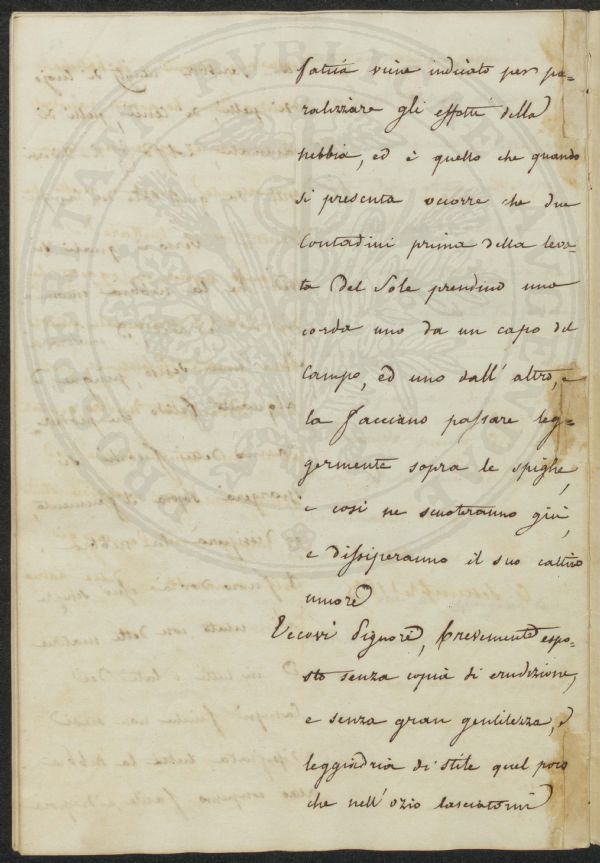 fatica viene indicato per pa=
ralizzare gli effetti della
nebbia, ed è quello che quando
si presenta occorre che due
Contadini prima della leva=
ta del Sole prendino una
corda uno da un capo del
Campo, ed uno dall' altro, e
la facciano passare leg=
germente sopra le spighe,
e così ne scuoteranno giù,
e dissiperanno il suo cattivo
umore
Eccovi Signore, brevemente espo=
sto senza copia di erudizione,
e senza gran gentilezza, e
leggiadria di stile quel poco
che nell' ozio lasciatomi